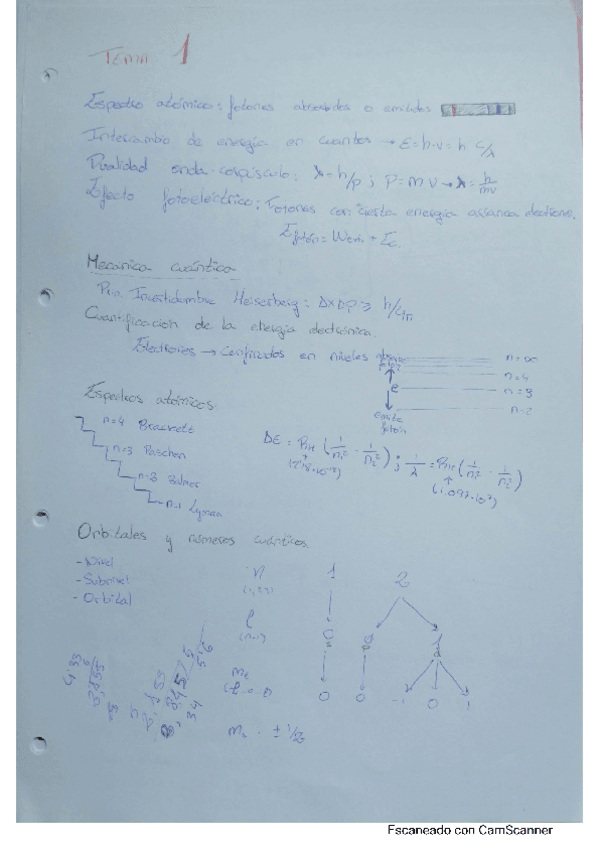 TEMA 1
Espectro atómico: fotones absorbidos o emitidos
Intercambio de energía en cuantos → E = h·ν = h c/λ
Dualidad onda-corpúsculo: λ = h/p ; P = m v → λ = h/mv
Efecto fotoeléctrico: Fotones con cierta energía arranca electrones.
Efotón = Wext + Ec.
Mecánica cuántica
Prin. Incertidumbre Heisenberg: ΔxΔp ≥ h/4π
Cuantificación de la energía electrónica.
Electrones → confinados en niveles
absorbe fotón
n=∞
n=4
e
n=3
emite fotón
n=2
Espectros atómicos
n=4 Brackett
n=3 Paschen
n=2 Balmer
n=1 Lyman
ΔE = RH (1/n² - 1/n²) ; 1/λ = RH (1/n² - 1/n²)
(2'18·10⁻¹⁸)
(1.097·10⁷)
Orbitales y números cuánticos.
- Nivel
- Subnivel
- Orbital
n 1 2
(1,2,3)
l 0 0 1
(n-1)
0 0 -1 0 1
± 1/2
Escaneado con CamScanner